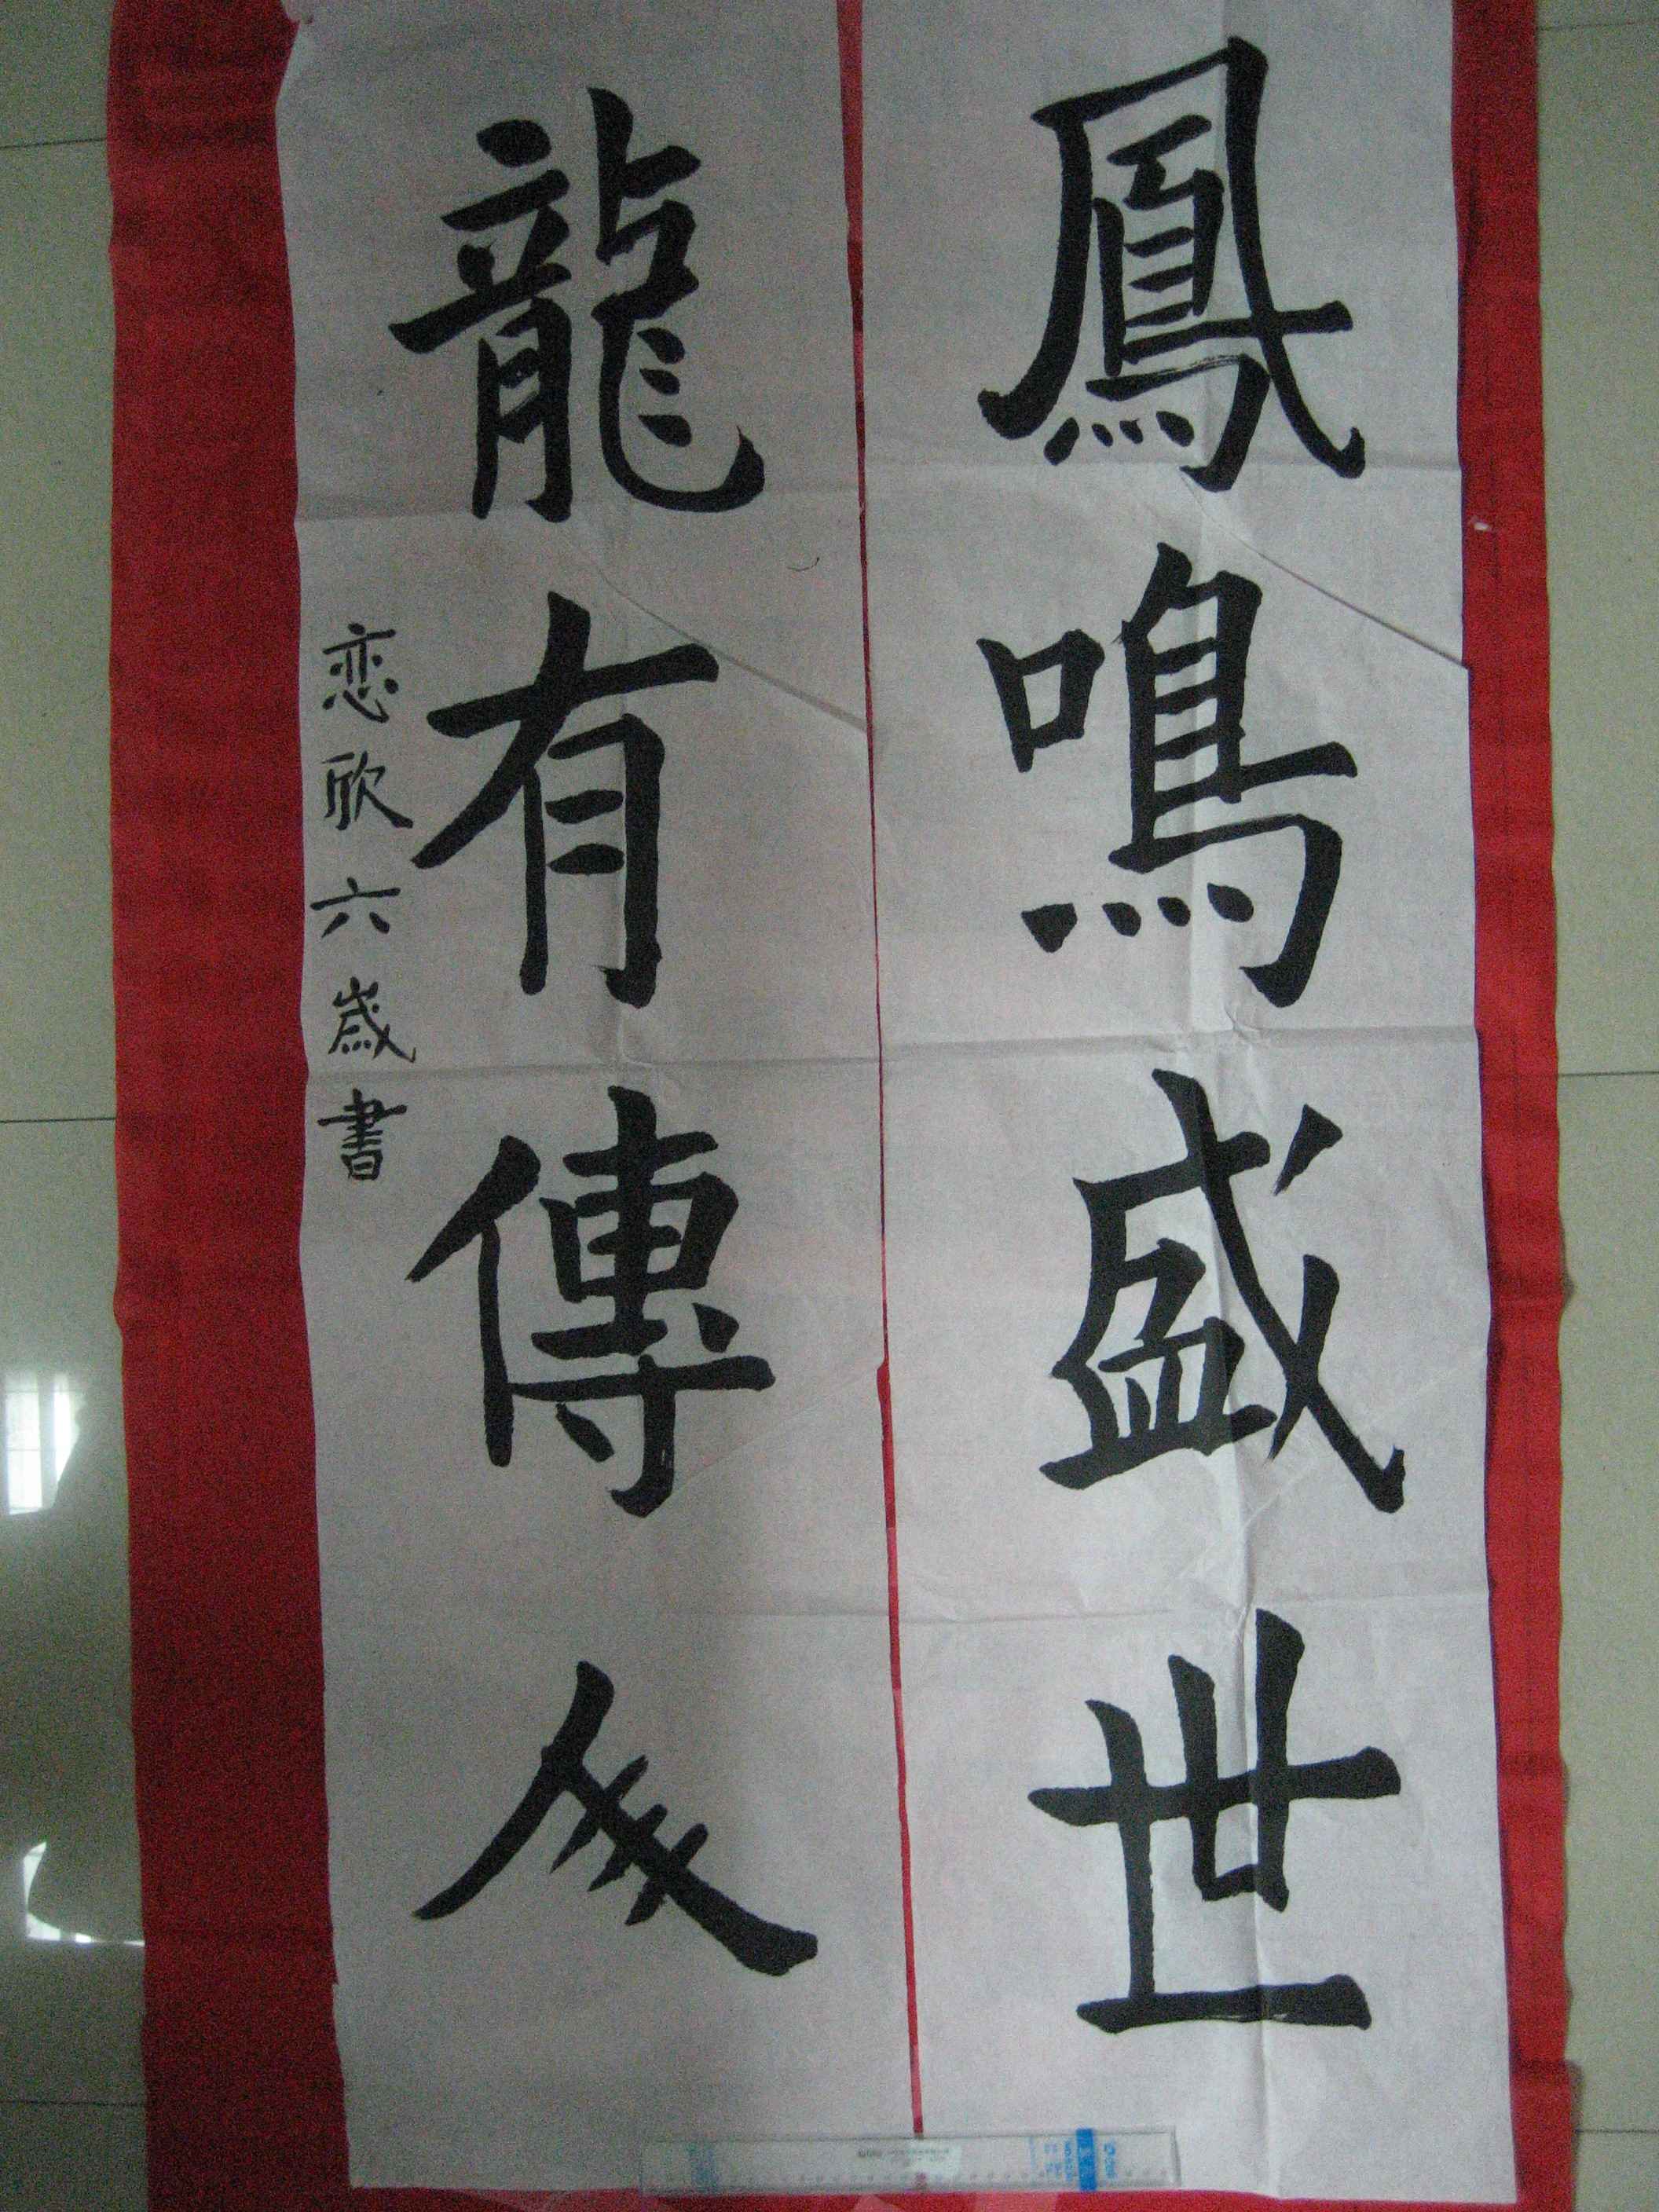 鳳鳴盛世
龍有傳人
恋欣六歲書